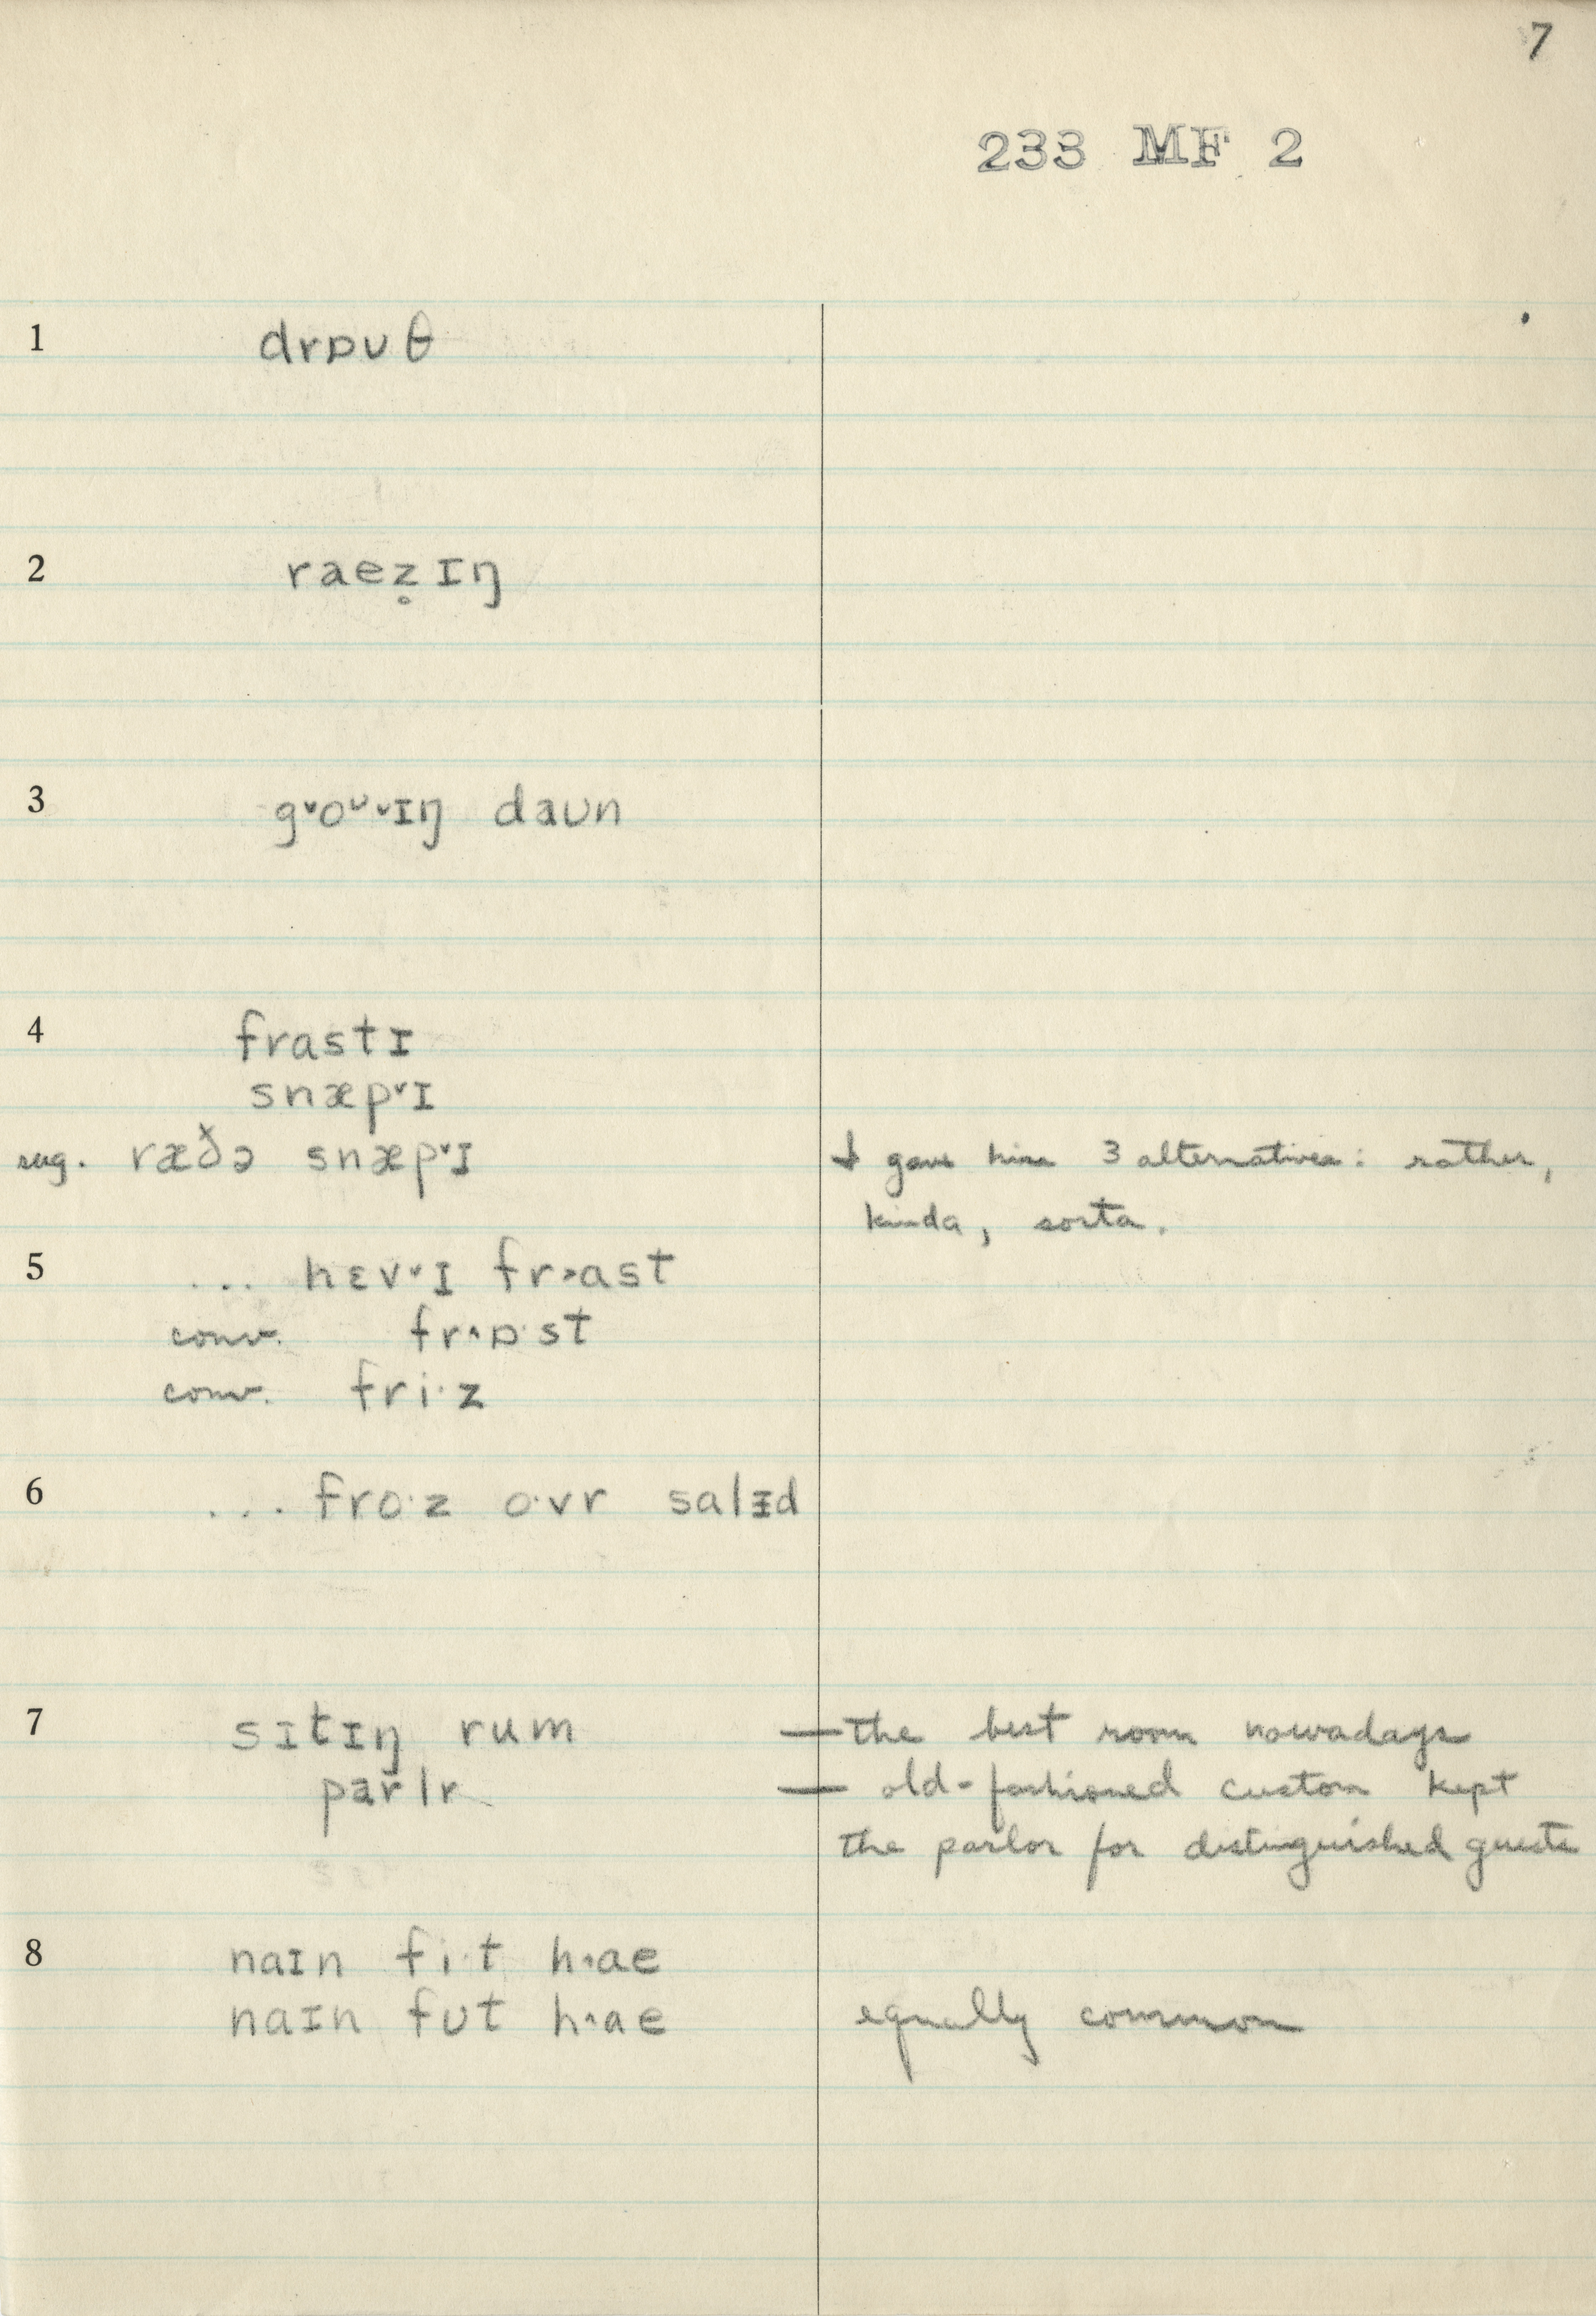 7
233 MF 2
1 drɒʊθ
2 raez̥ɪŋ
3 g˅oᶷ˅ɪŋ daʊn
4 frastɪ
snæp˅ɪ
sug. ræðə snæp˅ɪ I gave him 3 alternatives: rather,
kinda, sorta.
5 ... hɛv˅ɪ fr˃ast
conv. fr˄ɒ·st
conv. fri·z
6 ... fro·z o·vr salɪ̵d
7 sɪtɪŋ rum — the best room nowadays
parlr — old-fashioned custom kept
the parlor for distinguished guests
8 naɪn fi·t h˄ae
naɪn fʊt h˄ae equally common